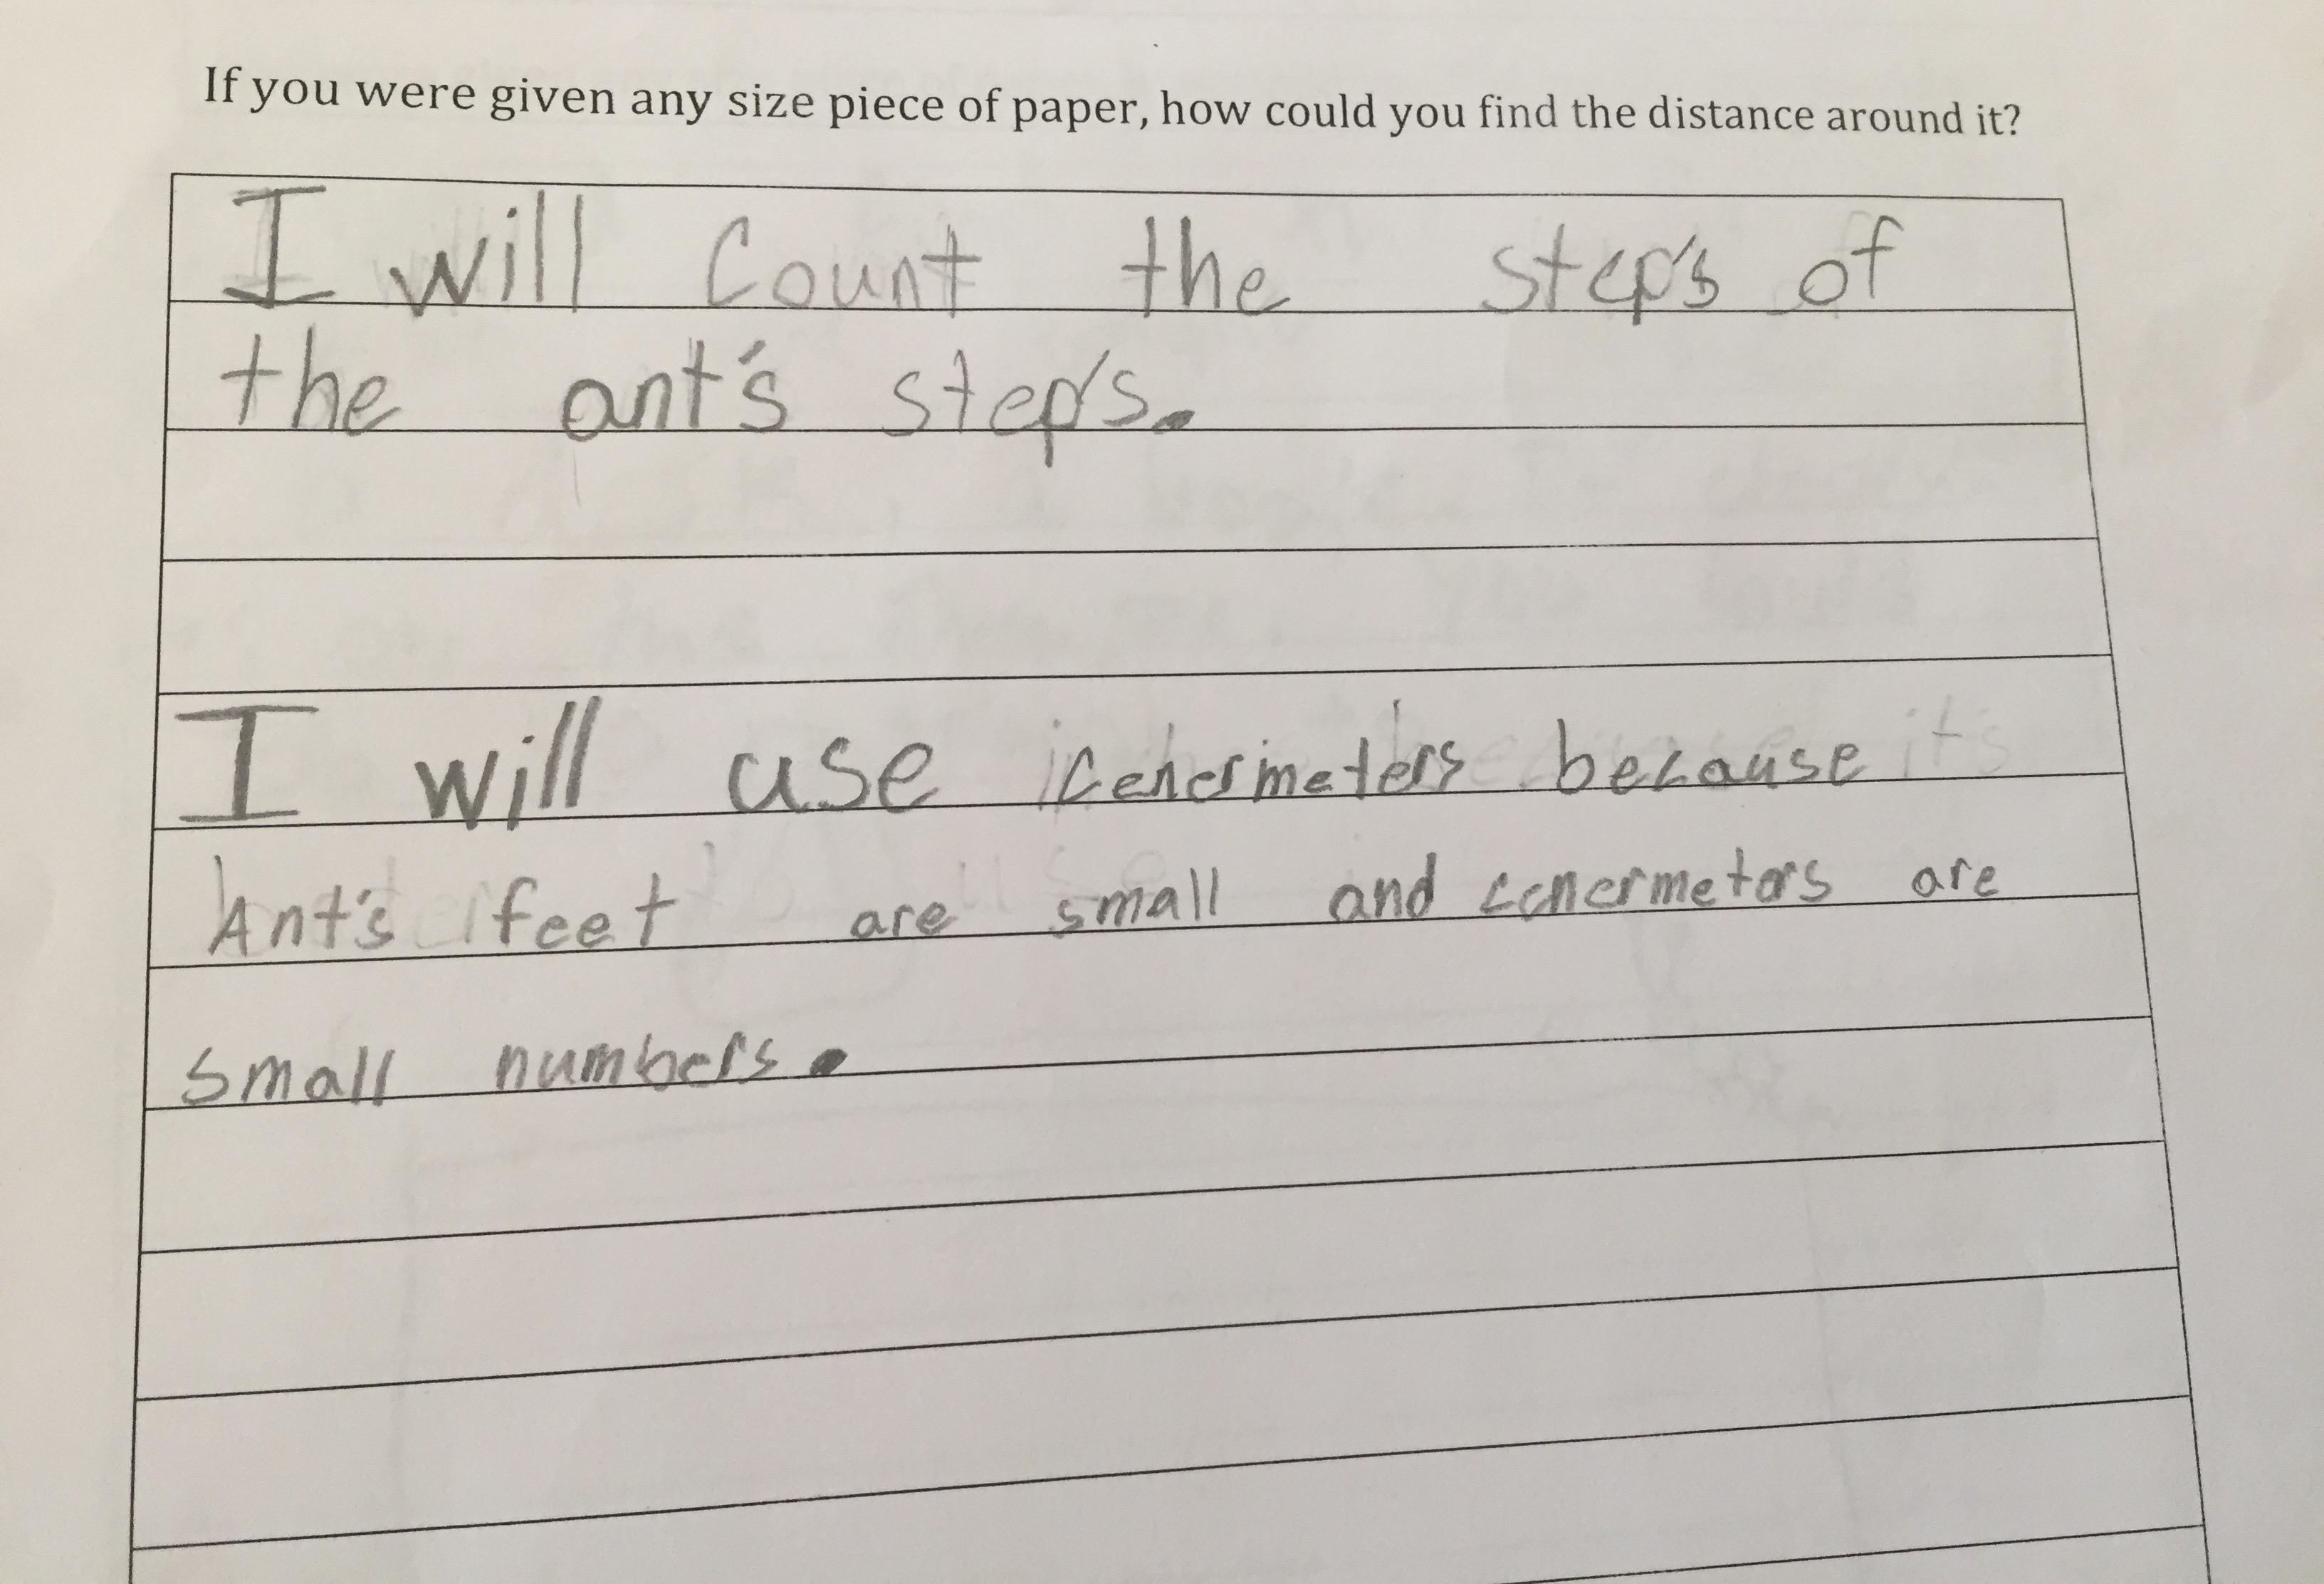 If you were given any size piece of paper, how could you find the distance around it?
I will Count the step's of
the ant's step's.
I will use cenermeters because
Ant's feet are small and cenermeters are
small numbers.